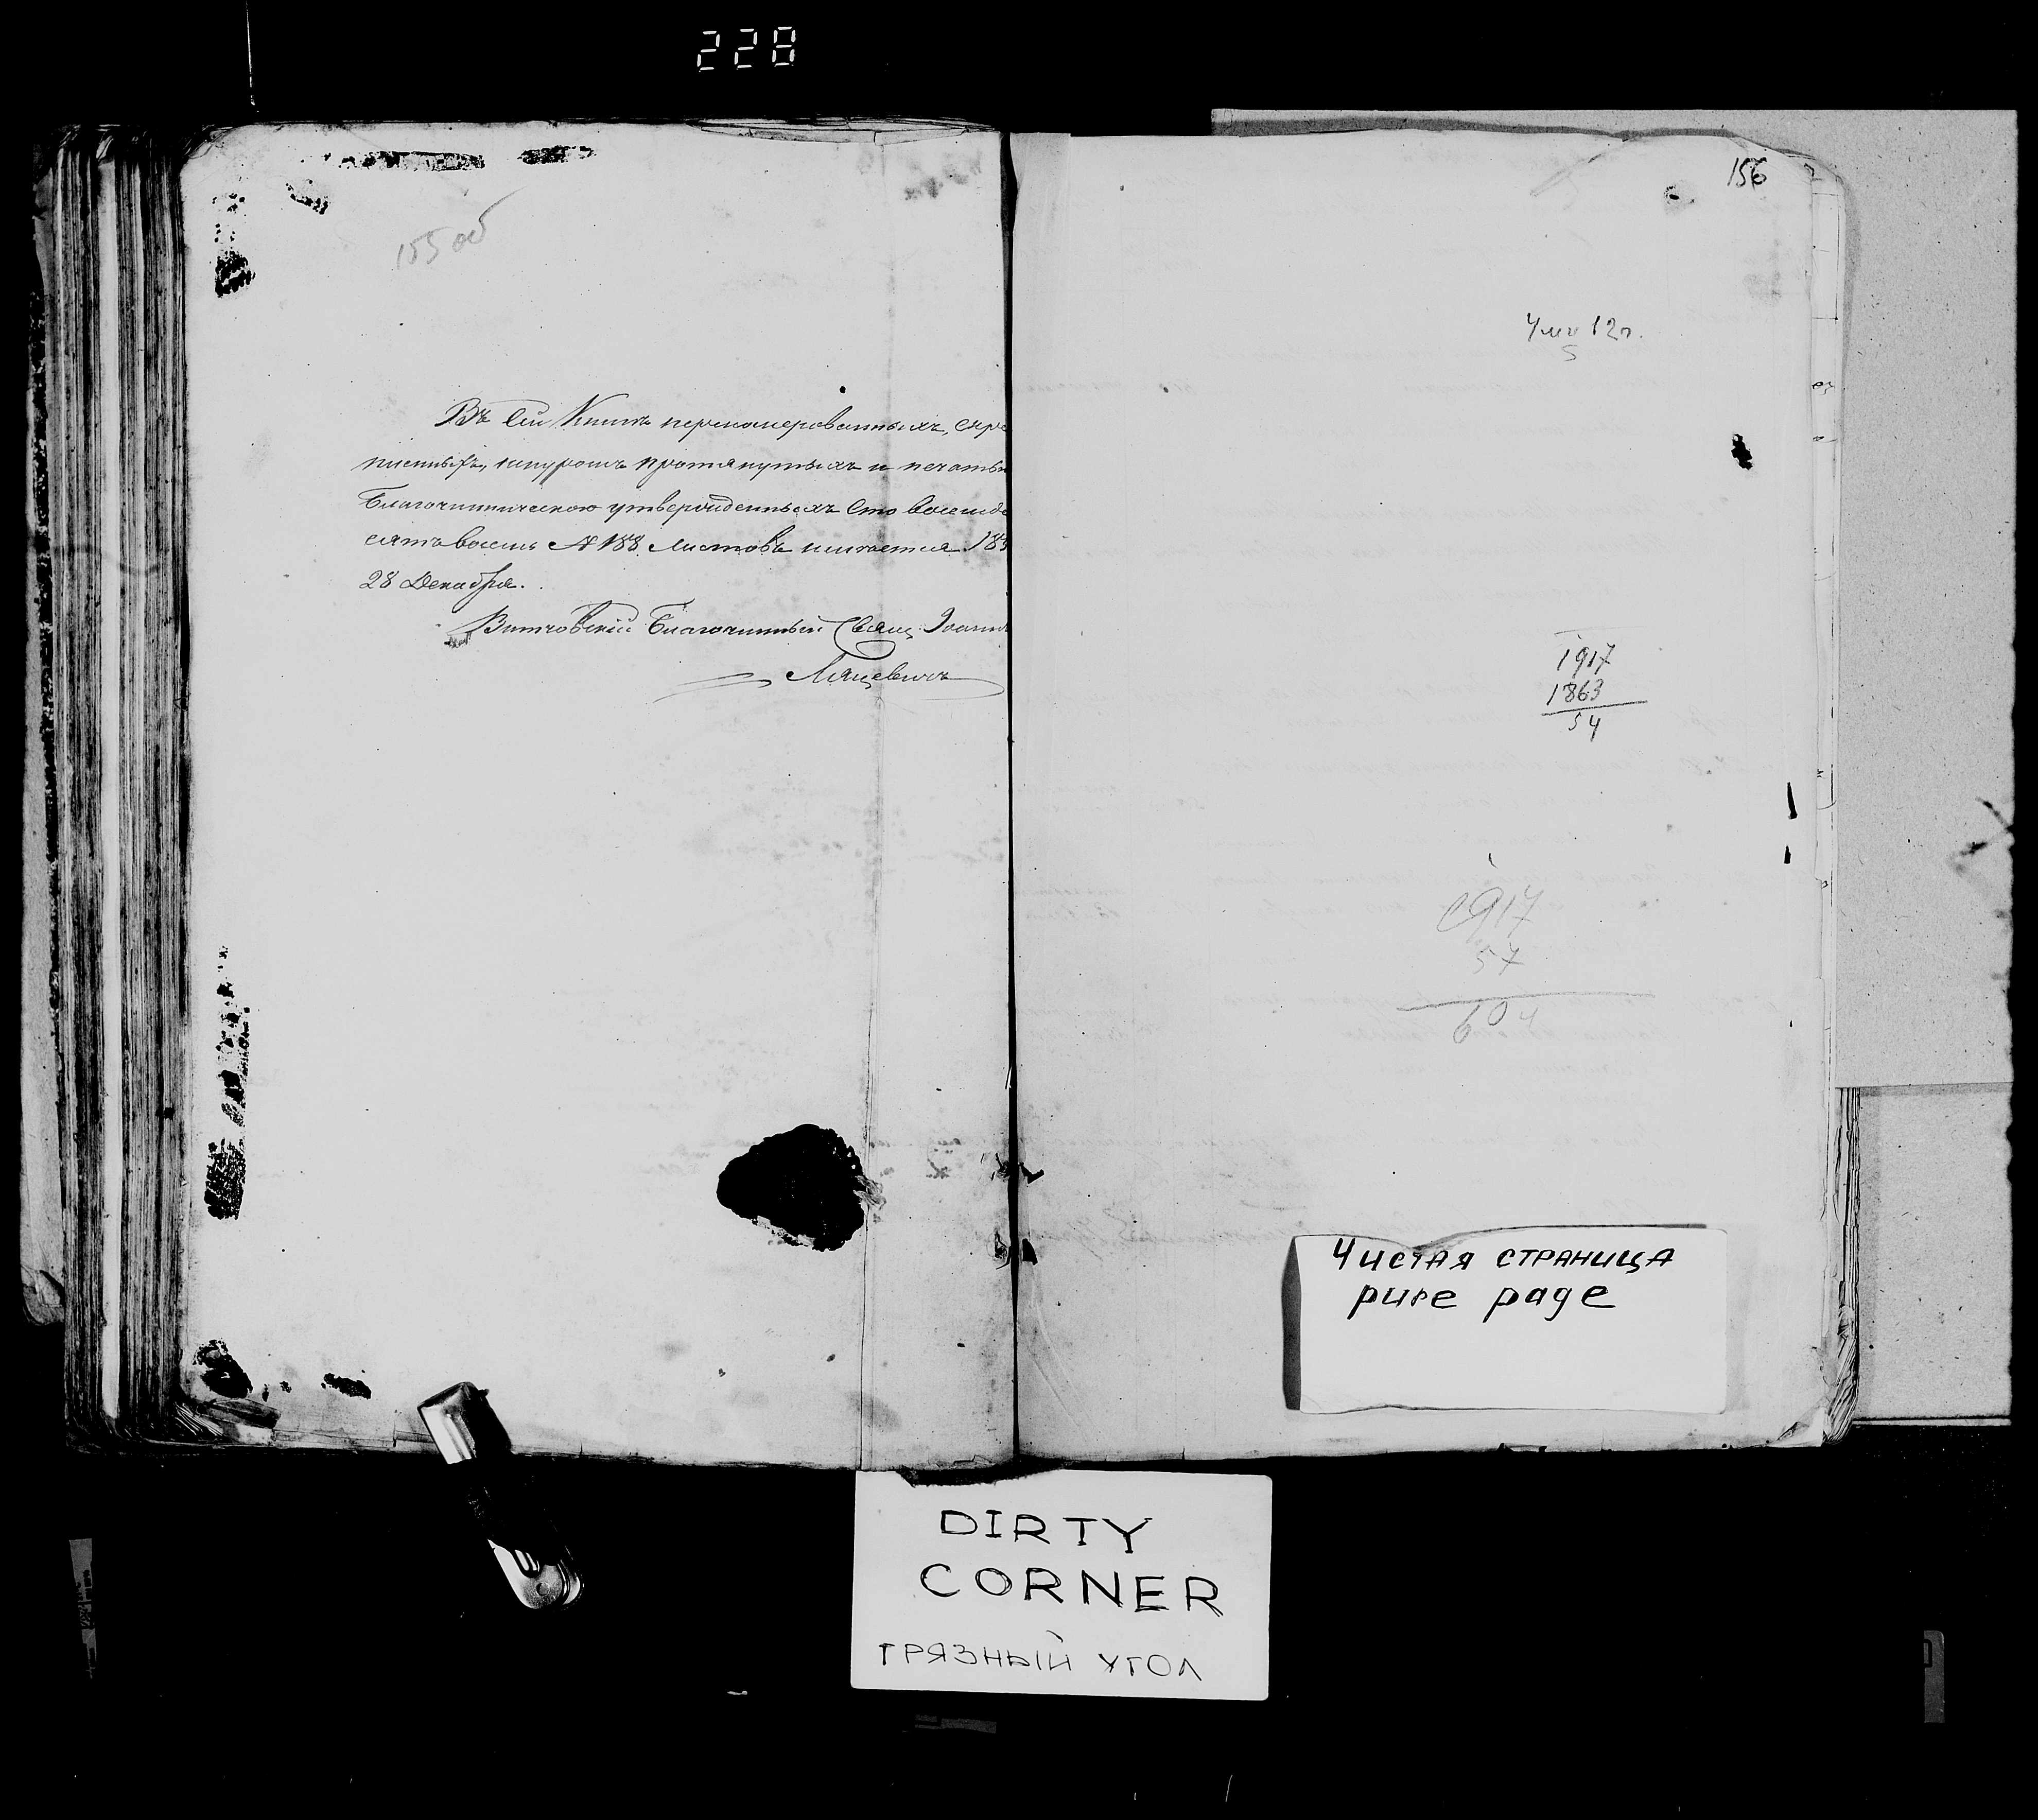 228
155 об
Въ сей Книгѣ перенамерованныхъ, скре
пленныхъ, шнуромъ протянутыхъ и печатью
Благочинническою утвержденныхъ сто восемьде
сятъ восемь № 188 листовъ числится 18
28 Декабря.
Благочинный Свящ Іоаннъ
Ляцевичъ
156
12
5
1917
1863
54
1917
57
604
Чистая страница
pure page
DIRTY
CORNER
ГРЯЗНЫЙ УГОЛ